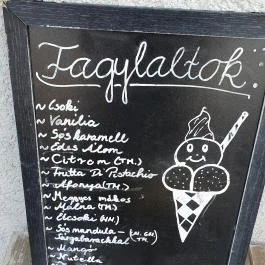 Fagylaltok:
~ Csoki
~ Vanília
~ Sós karamell
~ Édes Álom
~ Citrom (TM.)
~ Frutta Di Pistachio
~ Áfonya (TM.)
~ Meggyes mákos
~ Málna (TM.)
~ Étcsoki (NN)
~ Sós mandula -
Sárgabarackkal (TM.
~ Mangó
~ Nutella